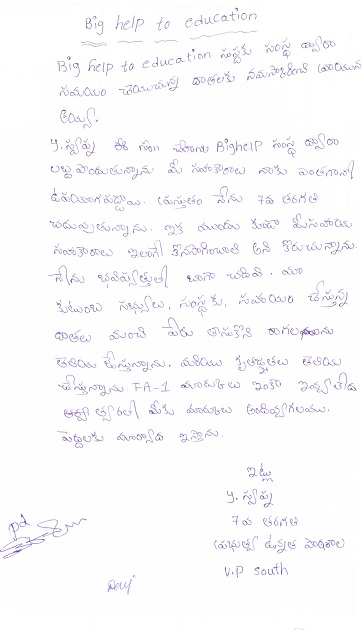 Big help to education
Big help to education స్వచ్ఛంద సంస్థ ద్వారా
సహాయం చేయుచున్న దాతలకు నమస్కరించి వ్రాయునది
y. స్వప్న ఈ సం॥ Bighelp సంస్థ ద్వారా
లబ్ది పొందుతున్నాను మీ సహకారాలు నాకు ఎంతగానో
ఉపయోగపడ్డాయి. ప్రస్తుతం నేను 7వ తరగతి
చదువుతున్నాను. ఇక ముందు కూడా మీ సహాయ
సహకారాలు ఇలాగే కొనసాగించాలి అని కోరుచున్నాను.
నేను భవిష్యత్తులో బాగా చదివి. మా
కుటుంబ సభ్యులు, సంస్థకు, సహాయం చేస్తున్న
దాతలు మంచి పేరు తీసుకొని రాగలను
తెలియ చేస్తున్నాను. మరియు కృతజ్ఞతలు తెలియ
చేస్తున్నాను. FA-1 మార్కులు ఇంకా ఇవ్వలేదు
త్వరలో మీకు మార్కులు
పెద్దలకు ఇస్తాను.
ఇట్లు
y. స్వప్న
7వ తరగతి
ప్రభుత్వ ఉన్నత పాఠశాల
V.P South
pd